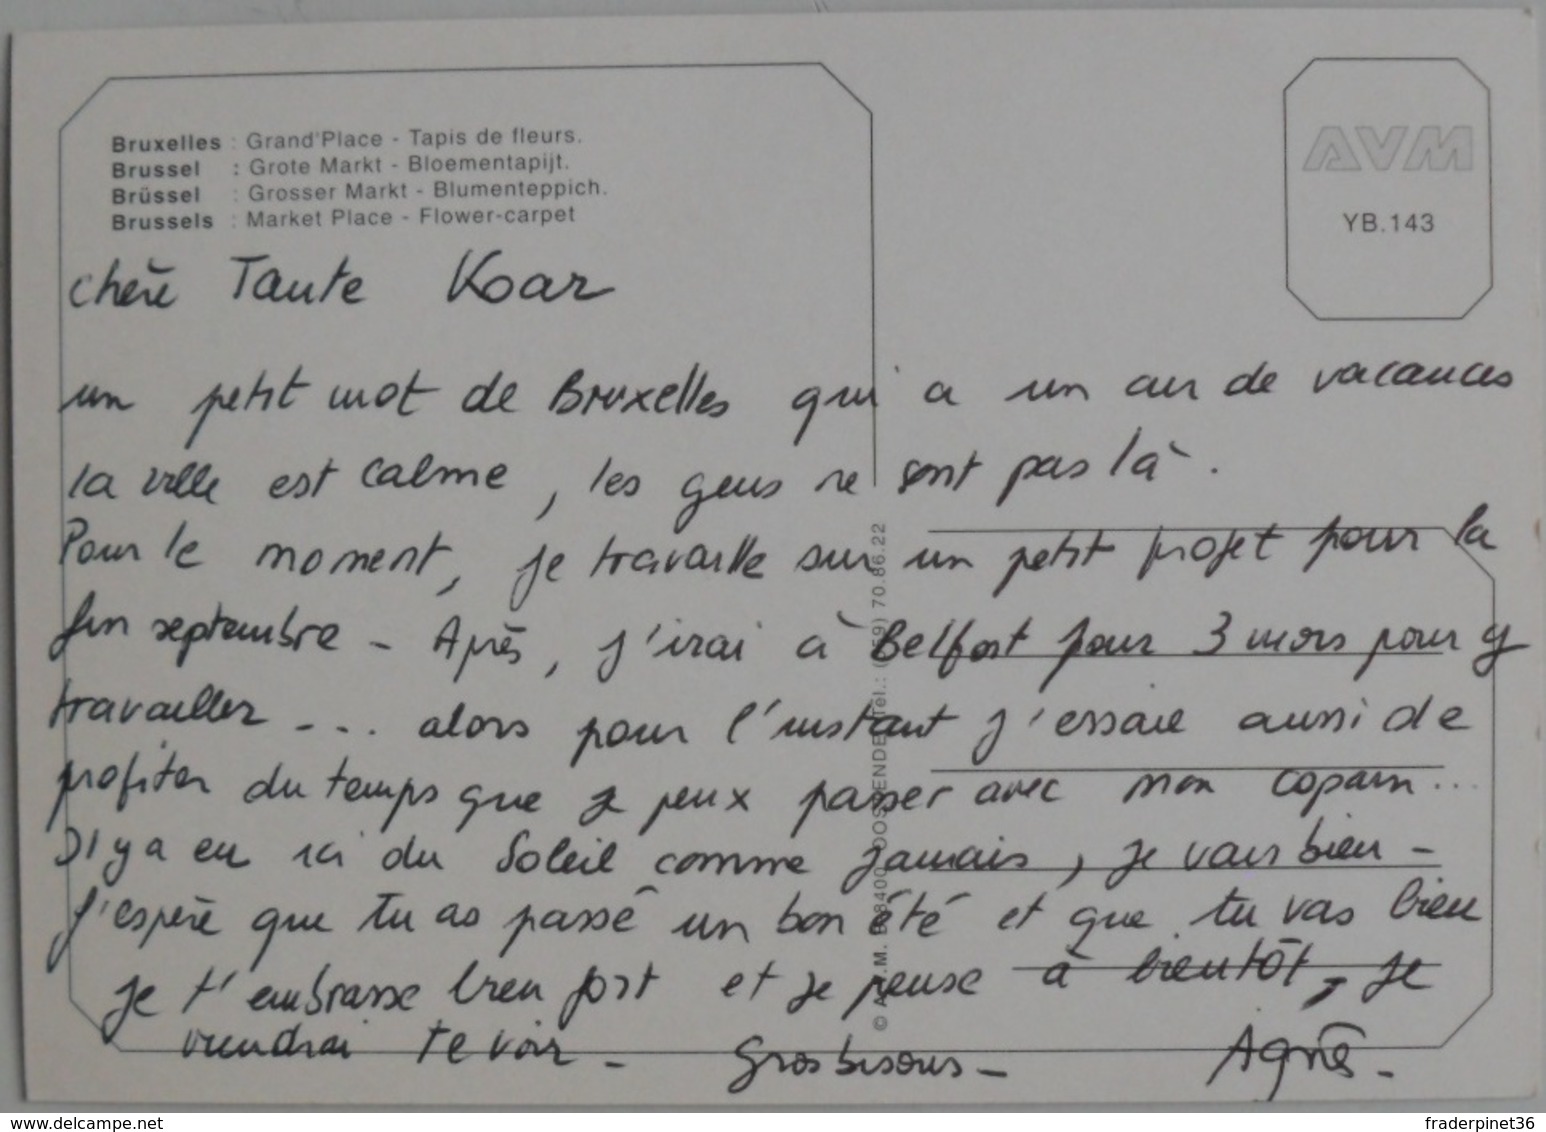 Bruxelles : Grand'Place - Tapis de fleurs.
Brussel : Grote Markt - Bloementapijt.
Brüssel : Grosser Markt - Blumenteppich.
Brussels : Market Place - Flower-carpet
AVM
YB.143
chère Tante Koar
un petit mot de Bruxelles qui a un air de vacances
la ville est calme, les gens ne sont pas là.
Pour le moment, je travaille sur un petit projet pour la
fin septembre - Après, j'irai à Belfort pour 3 mois pour y
travailler - ... alors pour l'instant j'essaie aussi de
profiter du temps que je peux passer avec mon copain...
Il y a eu ici du Soleil comme jamais, je vais bien -
J'espère que tu as passé un bon été et que tu vas bien
je t'embrasse bien fort et je pense à bientôt, je
viendrai te voir - Gros bisous -
Agnès -
© A.V.M. B8400 OOSTENDE Tél.: (059) 70.86.22
www.delcampe.net
fraderpinet36